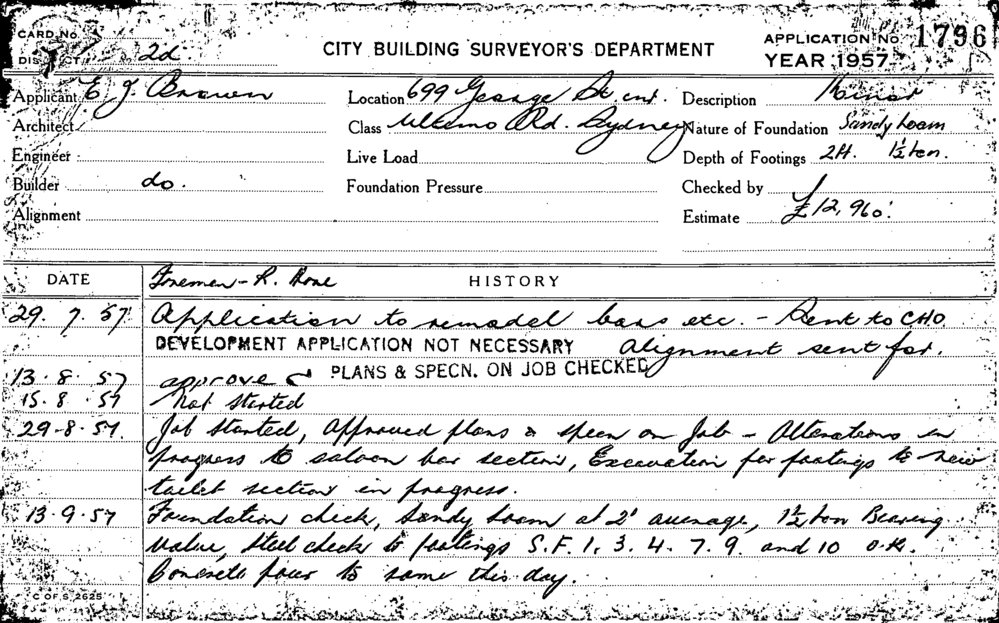 CARD No
CITY BUILDING SURVEYOR'S DEPARTMENT
APPLICATION No 1796
DISTRICT 2d.
YEAR 1957
Applicant E J Brown
Location 699 George St cnr.
Description Minor
Architect
Class Ultimo Rd. Sydney
Nature of Foundation Sandy Loam
Engineer
Live Load
Depth of Footings 2ft. 1½ ton.
Builder do.
Foundation Pressure
Checked by
Alignment
Estimate £12,960.
DATE
Foreman - R. Hore
HISTORY
29. 7. 57 Application to remodel bars etc. - Sent to C.H.O.
DEVELOPMENT APPLICATION NOT NECESSARY Alignment sent for.
13. 8. 57 approved PLANS & SPECN. ON JOB CHECKED
15. 8. 57 Not started
29-8. 57. Job started, Approved plans & specn on Job - Alterations in
progress to saloon bar section, Excavation for footings to new
toilet section in progress.
13. 9. 57 Foundation check, Sandy Loam at 2' average, 1½ ton Bearing
value, Steel check to footings S.F. 1. 3. 4. 7. 9. and 10 O.K.
Concrete pour to same this day.
C OF S 2625